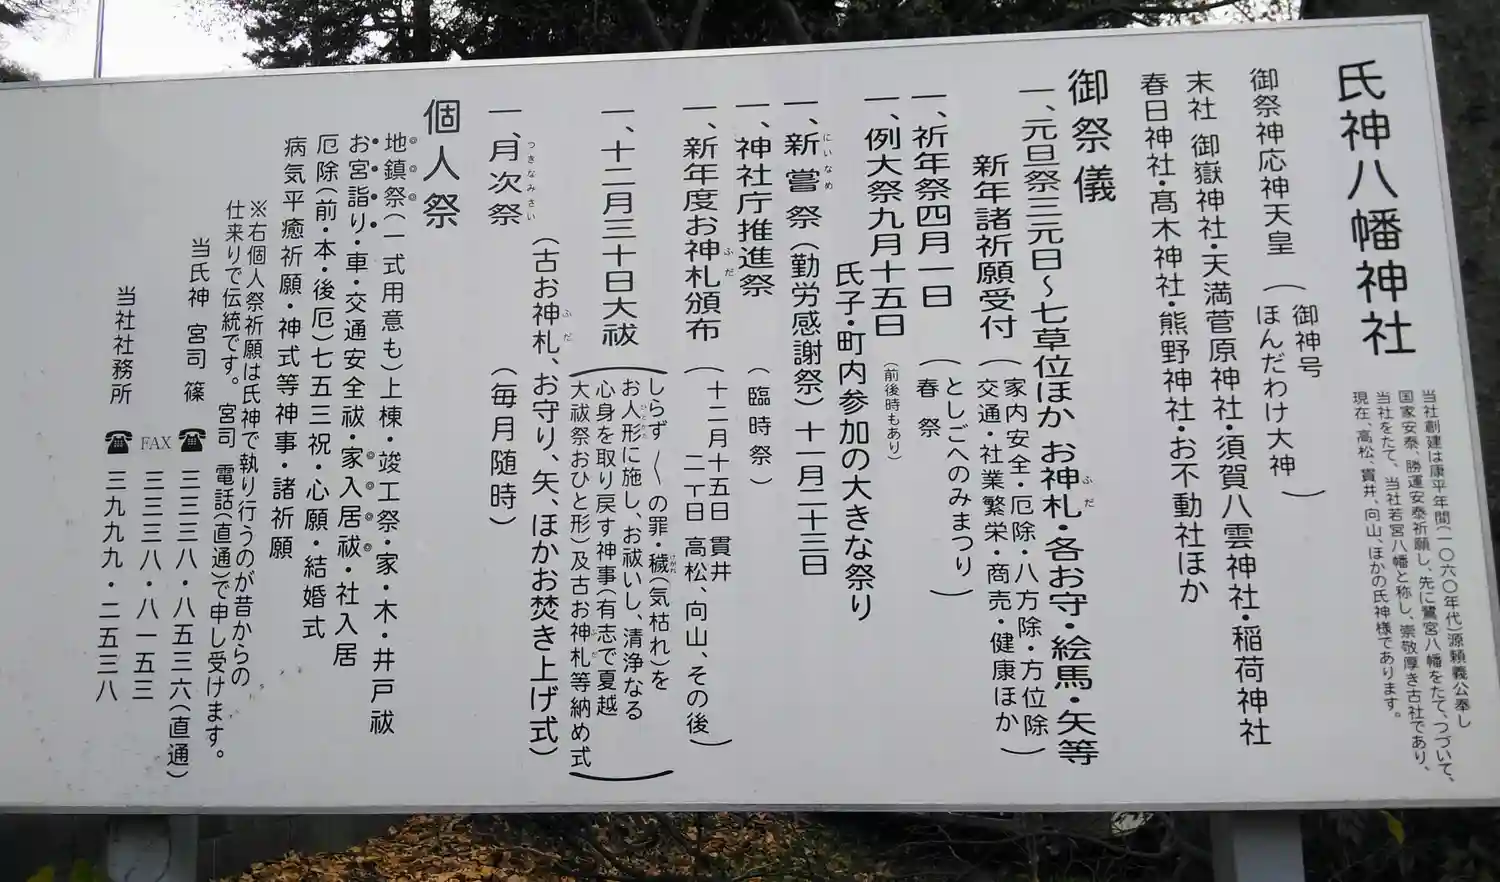 氏神八幡神社
当社創建は康平年間(一〇六〇年代)源頼義公奉し
国家安泰、勝運安泰祈願し、先に鷺宮八幡をたて、つづいて、
当社をたて、当社若宮八幡と称し、崇敬厚き古社であり、
現在、高松、貫井、向山、ほかの氏神様であります。
御祭神応神天皇(御神号
ほんだわけ大神)
末社 御嶽神社・天満菅原神社・須賀八雲神社・稲荷神社
春日神社・髙木神社・熊野神社・お不動社ほか
御祭儀
一、元旦祭三元日〜七草位ほか お神札・各お守・絵馬・矢等
ふだ
新年諸祈願受付(家内安全・厄除・八方除・方位除
交通・社業繁栄・商売・健康ほか)
一、祈年祭四月一日(としごへのみまつり
春祭)
一、例大祭九月十五日(前後時もあり)
氏子・町内参加の大きな祭り
一、新嘗祭(勤労感謝祭)十一月二十三日
にいなめ
一、神社庁推進祭(臨時祭)
一、新年度お神札頒布(十二月十五日 貫井
ふだ
二十日 高松、向山、その後)
一、十二月三十日大祓(しらず〳〵の罪・穢(気枯れ)を
けがれ
お人形に施し、お祓いし、清浄なる
心身を取り戻す神事(有志で夏越
大祓祭おひと形)及古お神札等納め式)
ふだ
(古お神札、お守り、矢、ほかお焚き上げ式)
ふだ
一、月次祭(毎月随時)
つきなみさい
個人祭
地鎮祭(一式用意も)上棟・竣工祭・家・木・井戸祓
お宮詣り・車・交通安全祓・家入居祓・社入居
厄除(前・本・後厄)七五三祝・心願・結婚式
病気平癒祈願・神式等神事・諸祈願
※右個人祭祈願は氏神で執り行うのが昔からの
仕来りで伝統です。宮司 電話(直通)で申し受けます。
当氏神 宮司 篠 ☎三三三八・八五三六(直通)
FAX 三三三八・八一五三
当社社務所 ☎三九九九・二五三八